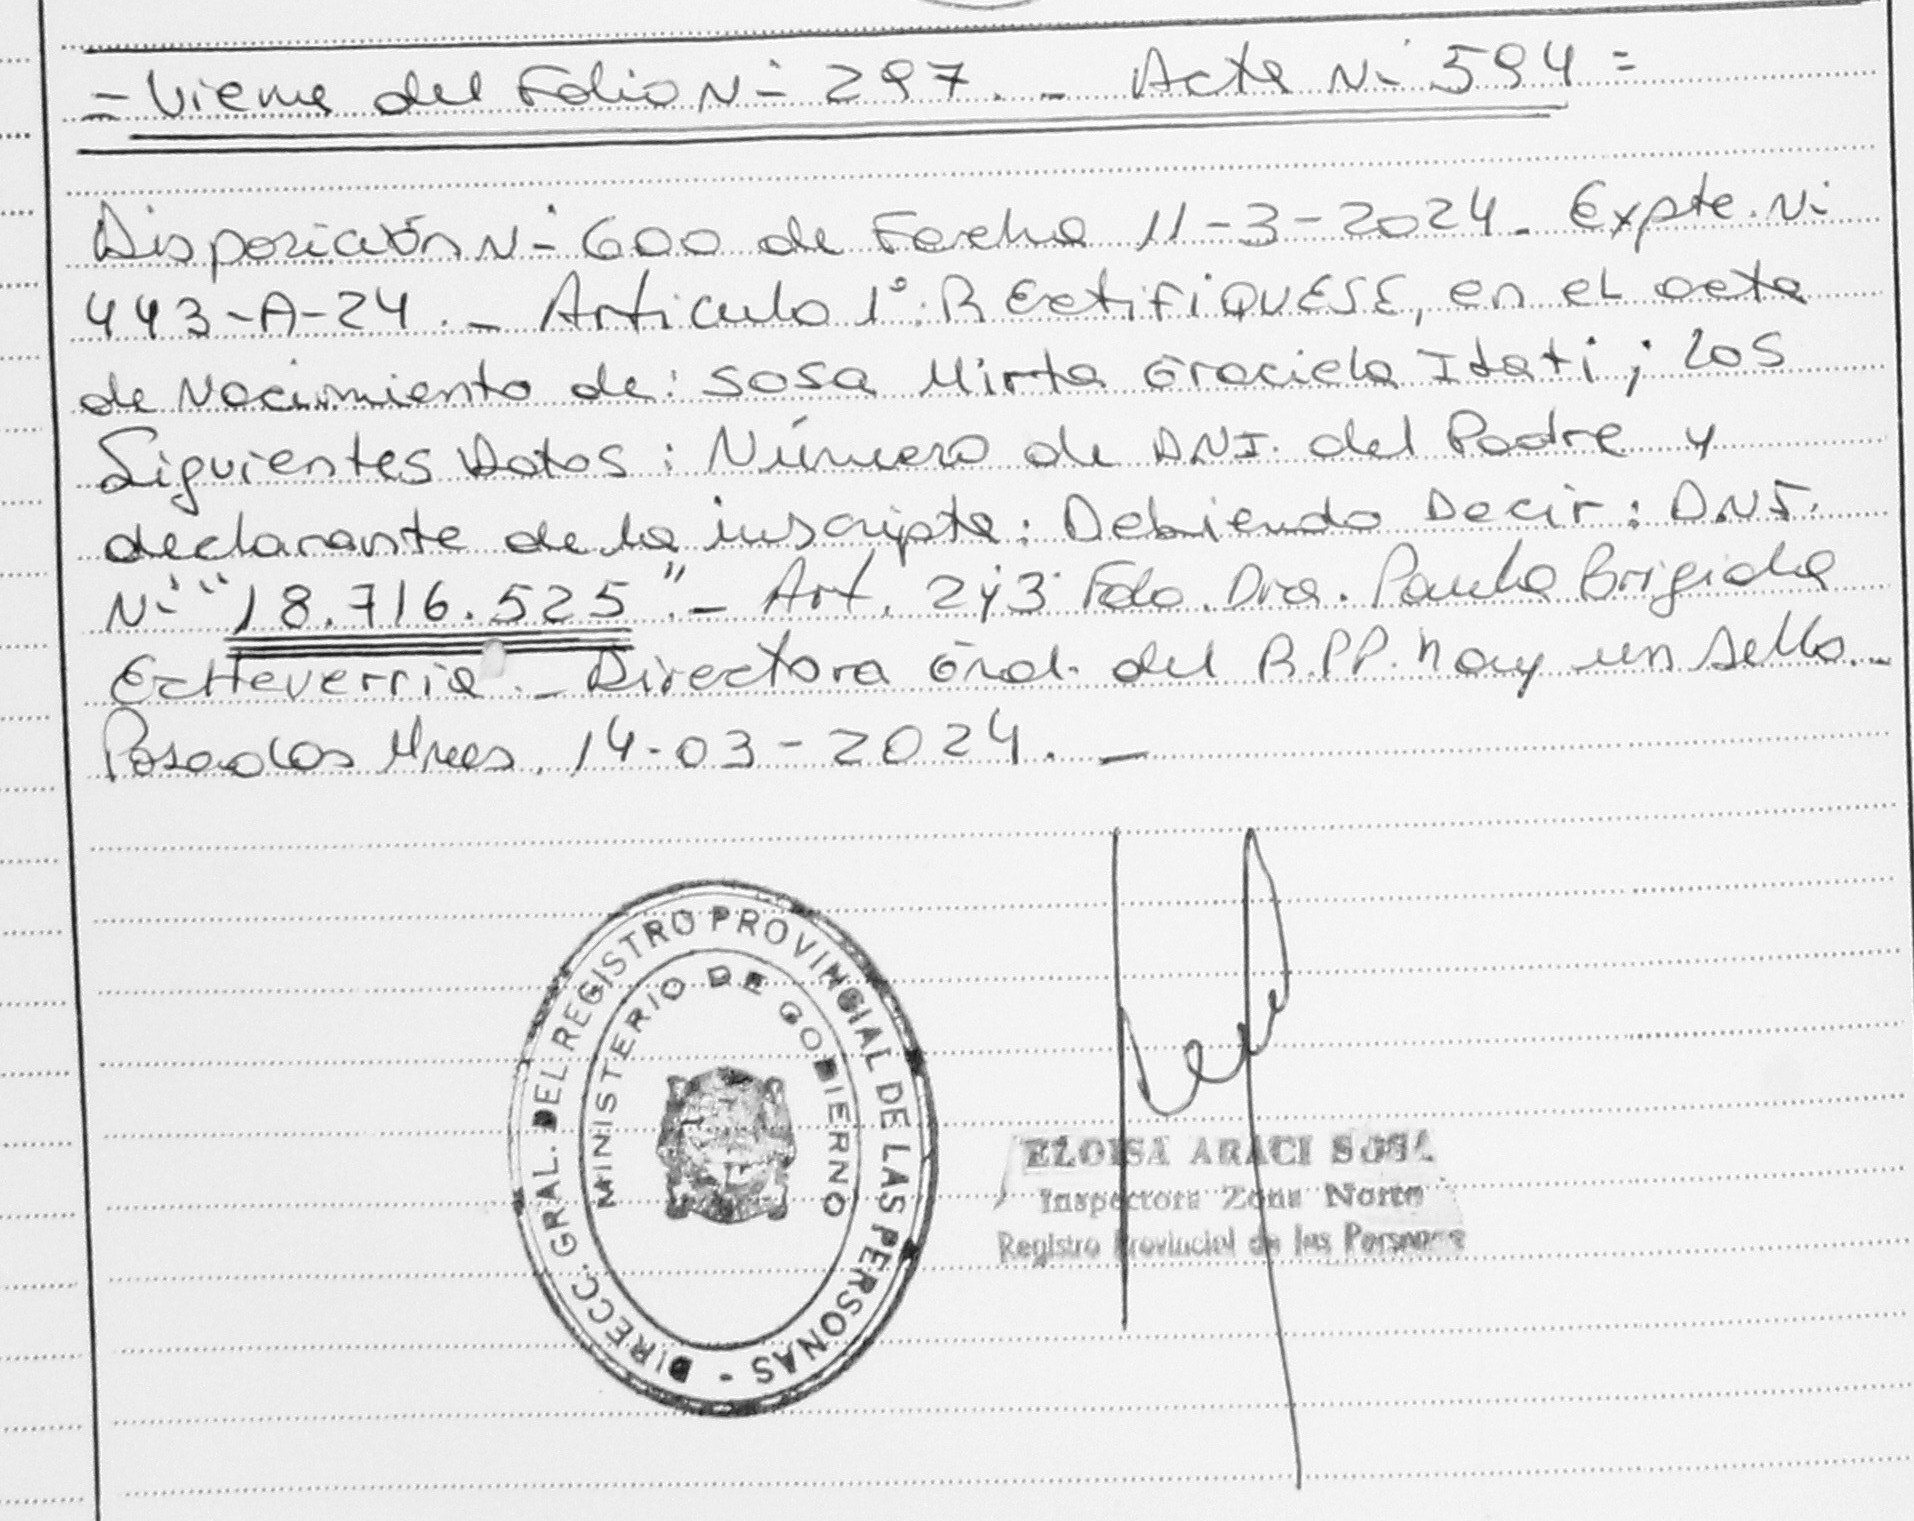 = Viene del Folio N- 297. - Acta N- 594 =
Disposición N- 600 de Fecha 11-3-2024. Expte. N-
443-A-24. - Articulo 1°: RECtiFiQUESE, en el acta
de Nacimiento de: SOSA Mirta Graciela Itati; los
Siguientes Datos: Número de D.N.I. del Padre y
declarante de la inscripta: Debiendo Decir: D.N.I.
N- "18.716.525". - Art. 2 y 3 Fdo. Dra. Paula Brigida
Echeverria. - Directora Gral. del R.P.P. hay un sello. -
Posadas Mnes. 14-03-2024. -
DIRECC. GRAL. DEL REGISTRO PROVINCIAL DE LAS PERSONAS -
MINISTERIO DE GOBIERNO
ELOISA ARACI SOSA
Inspectora Zona Norte
Registro Provincial de las Personas